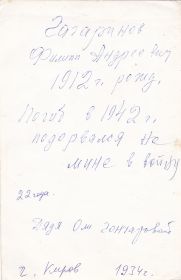 Гагаринов
Филипп Андреевич
1912 г. рожд.
Погиб в 1942 г.
подорвался на
мине в войну
22 года.
Дядя Ом
г. Киров 1934 г.